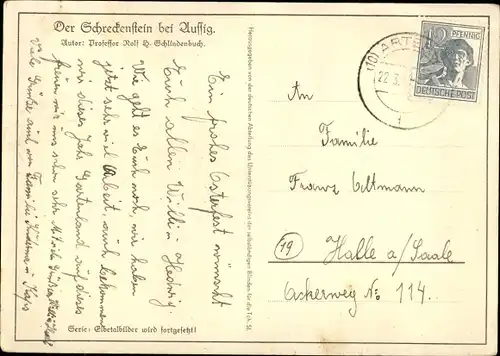 Der Schreckenstein bei Aussig.
Autor: Professor Rolf H. Schlindenbuch.
Ein frohes Osterfest wünscht
Euch allen Willi u. Hedwig.
Wie geht es Euch noch, wir haben
jetzt sehr viel Arbeit, auch bekommen
wir dieses Jahr Gartenland auf dies
freuen wir uns schon sehr
Viele Grüße auch von Familie
Serie: Elbetalbilder wird fortgesetzt!
Herausgegeben von der deutschen Abteilung des Unterstützungsvereins der selbständigen Blinden für die Tch. Sl.
(10) ARTE
22.3.
12 PFENNIG
DEUTSCHE POST
An
Familie
Franz Altmann
(19) Halle a/Saale
Ackerweg No 114.